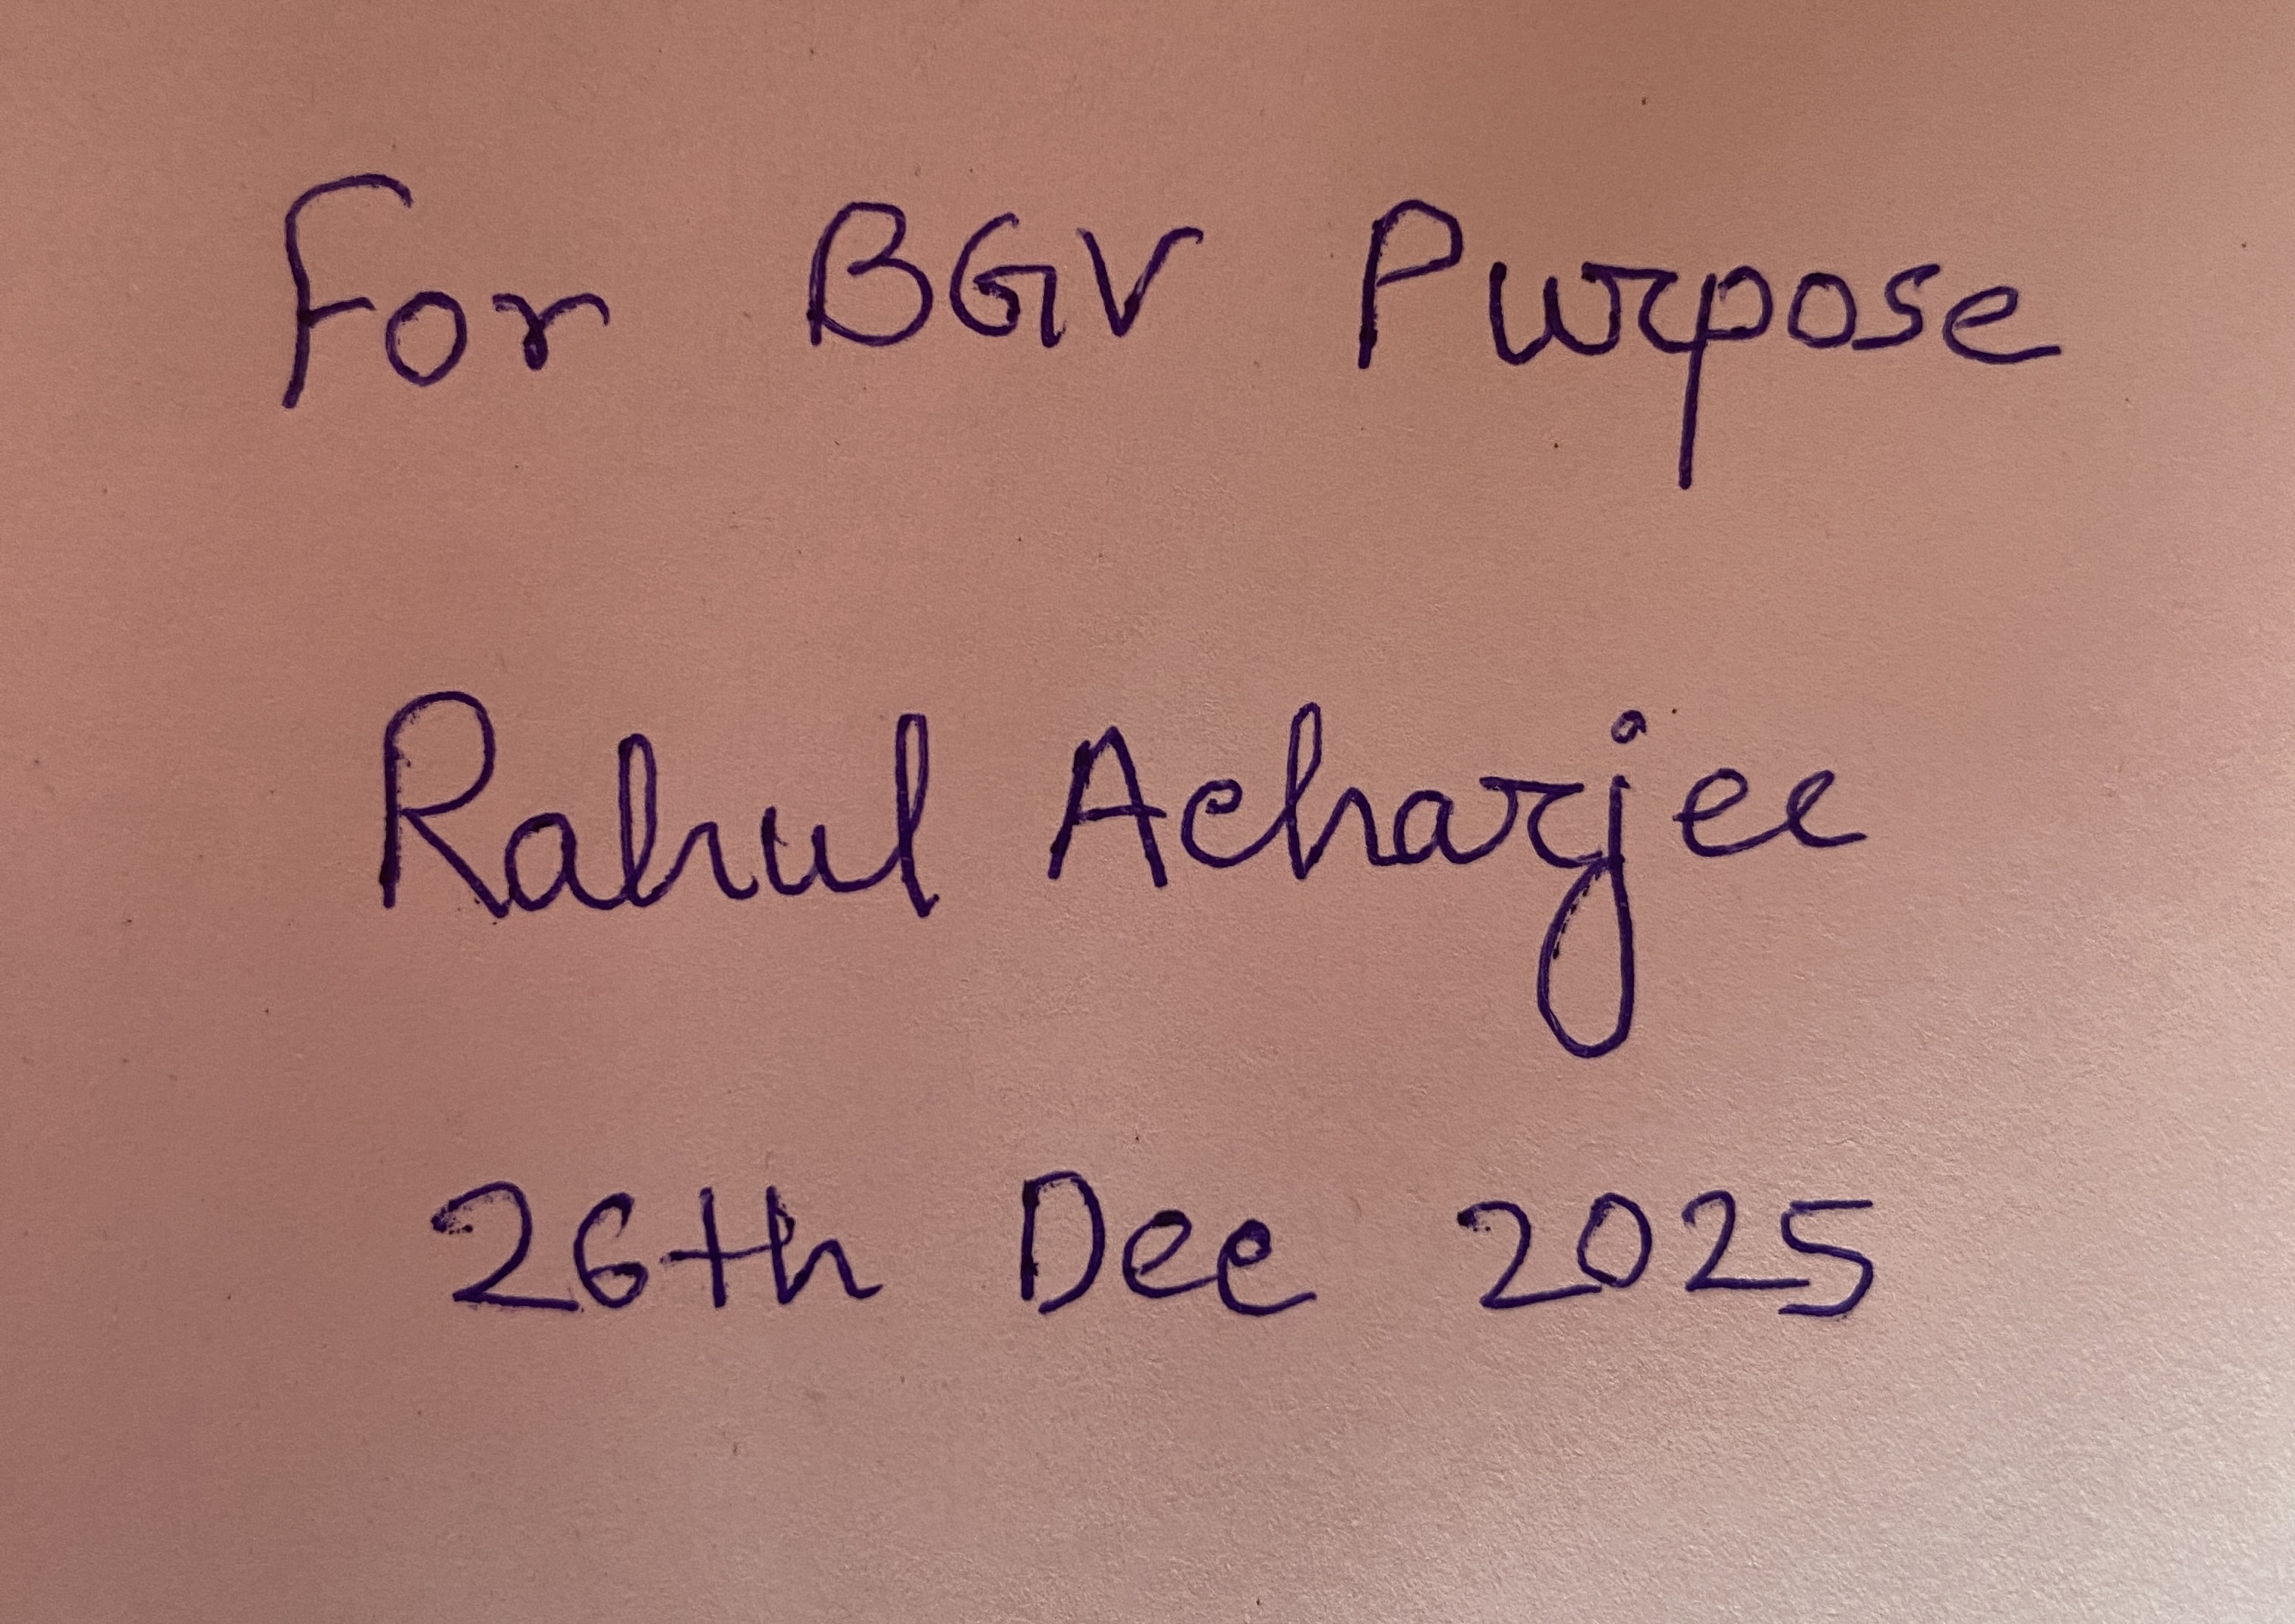 For BGV Purpose
Rahul Acharjee
26th Dec 2025